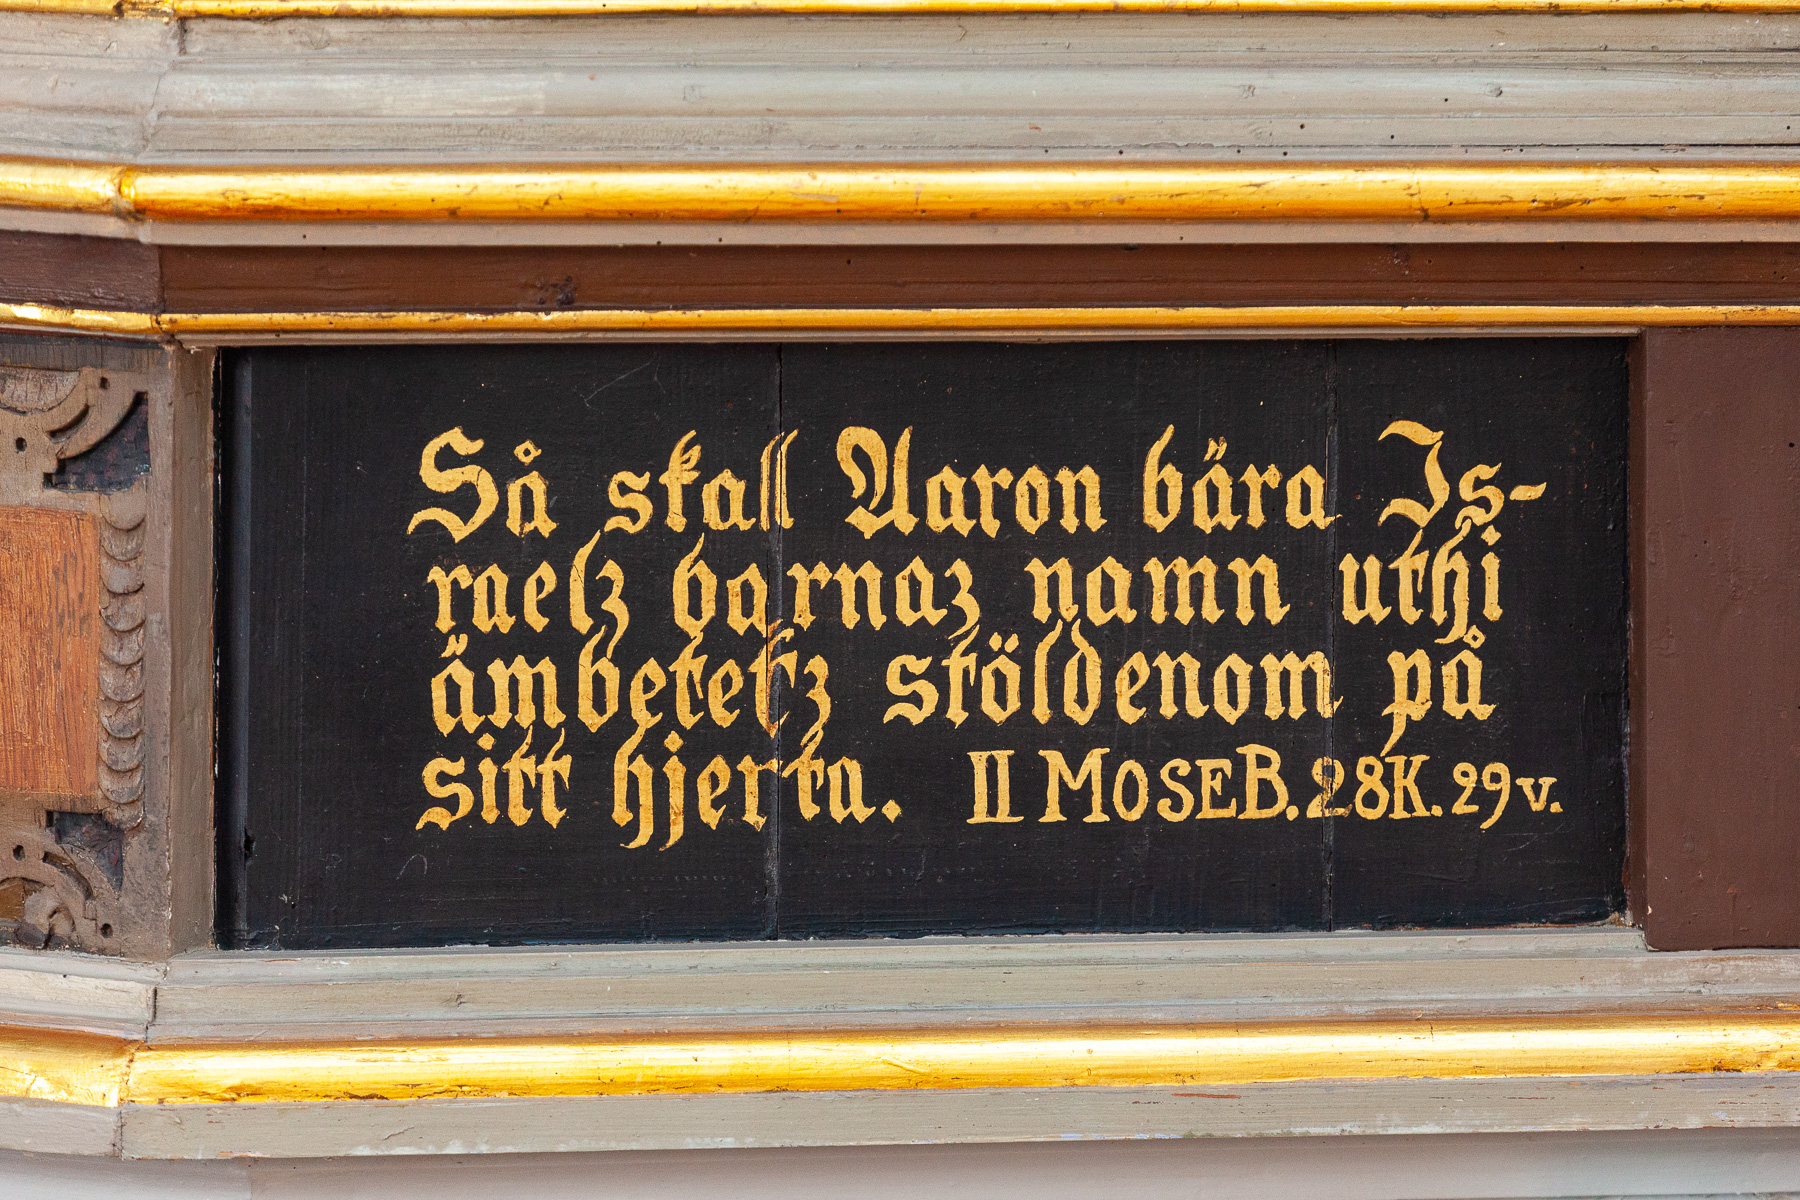 Så skall Aaron bära Is-
raelz barnaz namn uthi
ämbetetz stöldenom på
sitt hjerta. II MOSEB. 28K. 29v.